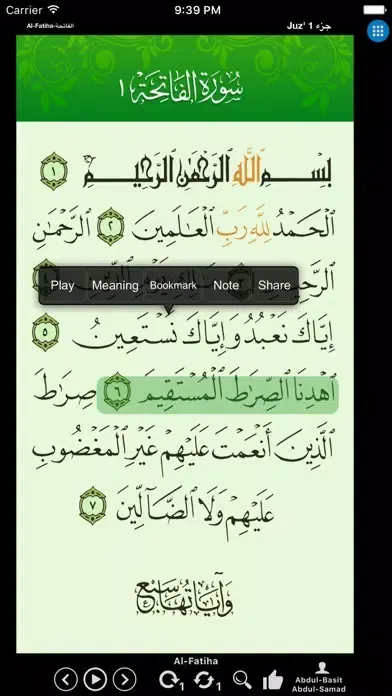 Carrier 9:39 PM
Al-Fatiha-الفاتحة Juz' 1 جزء
سُورَةُ الفَاتِحَةِ ١
بِسْمِ اللَّهِ الرَّحْمَٰنِ الرَّحِيمِ ١
الْحَمْدُ لِلَّهِ رَبِّ الْعَالَمِينَ ٢ الرَّحْمَٰنِ
الرَّحِيمِ
Play Meaning Bookmark Note Share
إِيَّاكَ نَعْبُدُ وَإِيَّاكَ نَسْتَعِينُ ٥
اهْدِنَا الصِّرَاطَ الْمُسْتَقِيمَ ٦ صِرَاطَ
الَّذِينَ أَنْعَمْتَ عَلَيْهِمْ غَيْرِ الْمَغْضُوبِ
عَلَيْهِمْ وَلَا الضَّآلِّينَ ٧
وَآيَاتُهَا سَبْع
Al-Fatiha
1 1
Abdul-Basit
Abdul-Samad